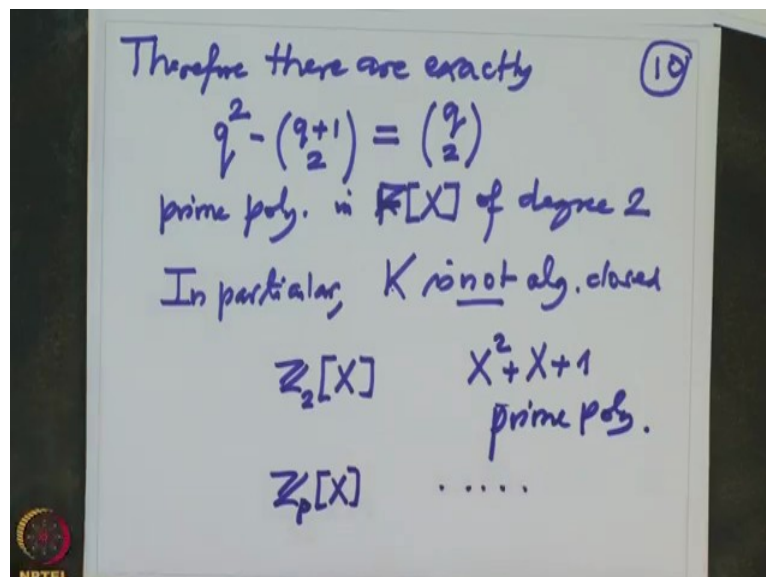 Therefore there are exactly
(10)
q² - (q+1 2) = (q 2)
prime poly. in K[X] of degree 2
In particular, K is not alg. closed
ℤ₂[X] X² + X + 1
prime poly.
ℤₚ[X] .....
NPTEL